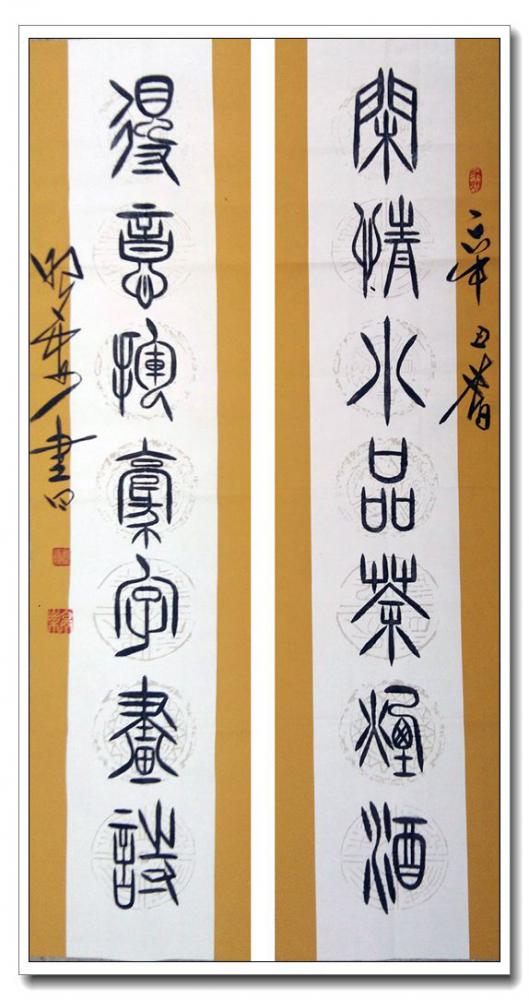 辛丑春
閑情小品茶煙酒
得意揮毫字畫詩
書